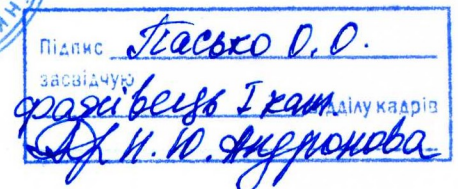 Підпис Пасько О.О.
засвідчую
фахівець І кат. відділу кадрів
Н. Ю. Андронова